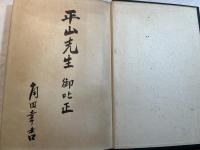 平山先生
御叱正
角田幸吉